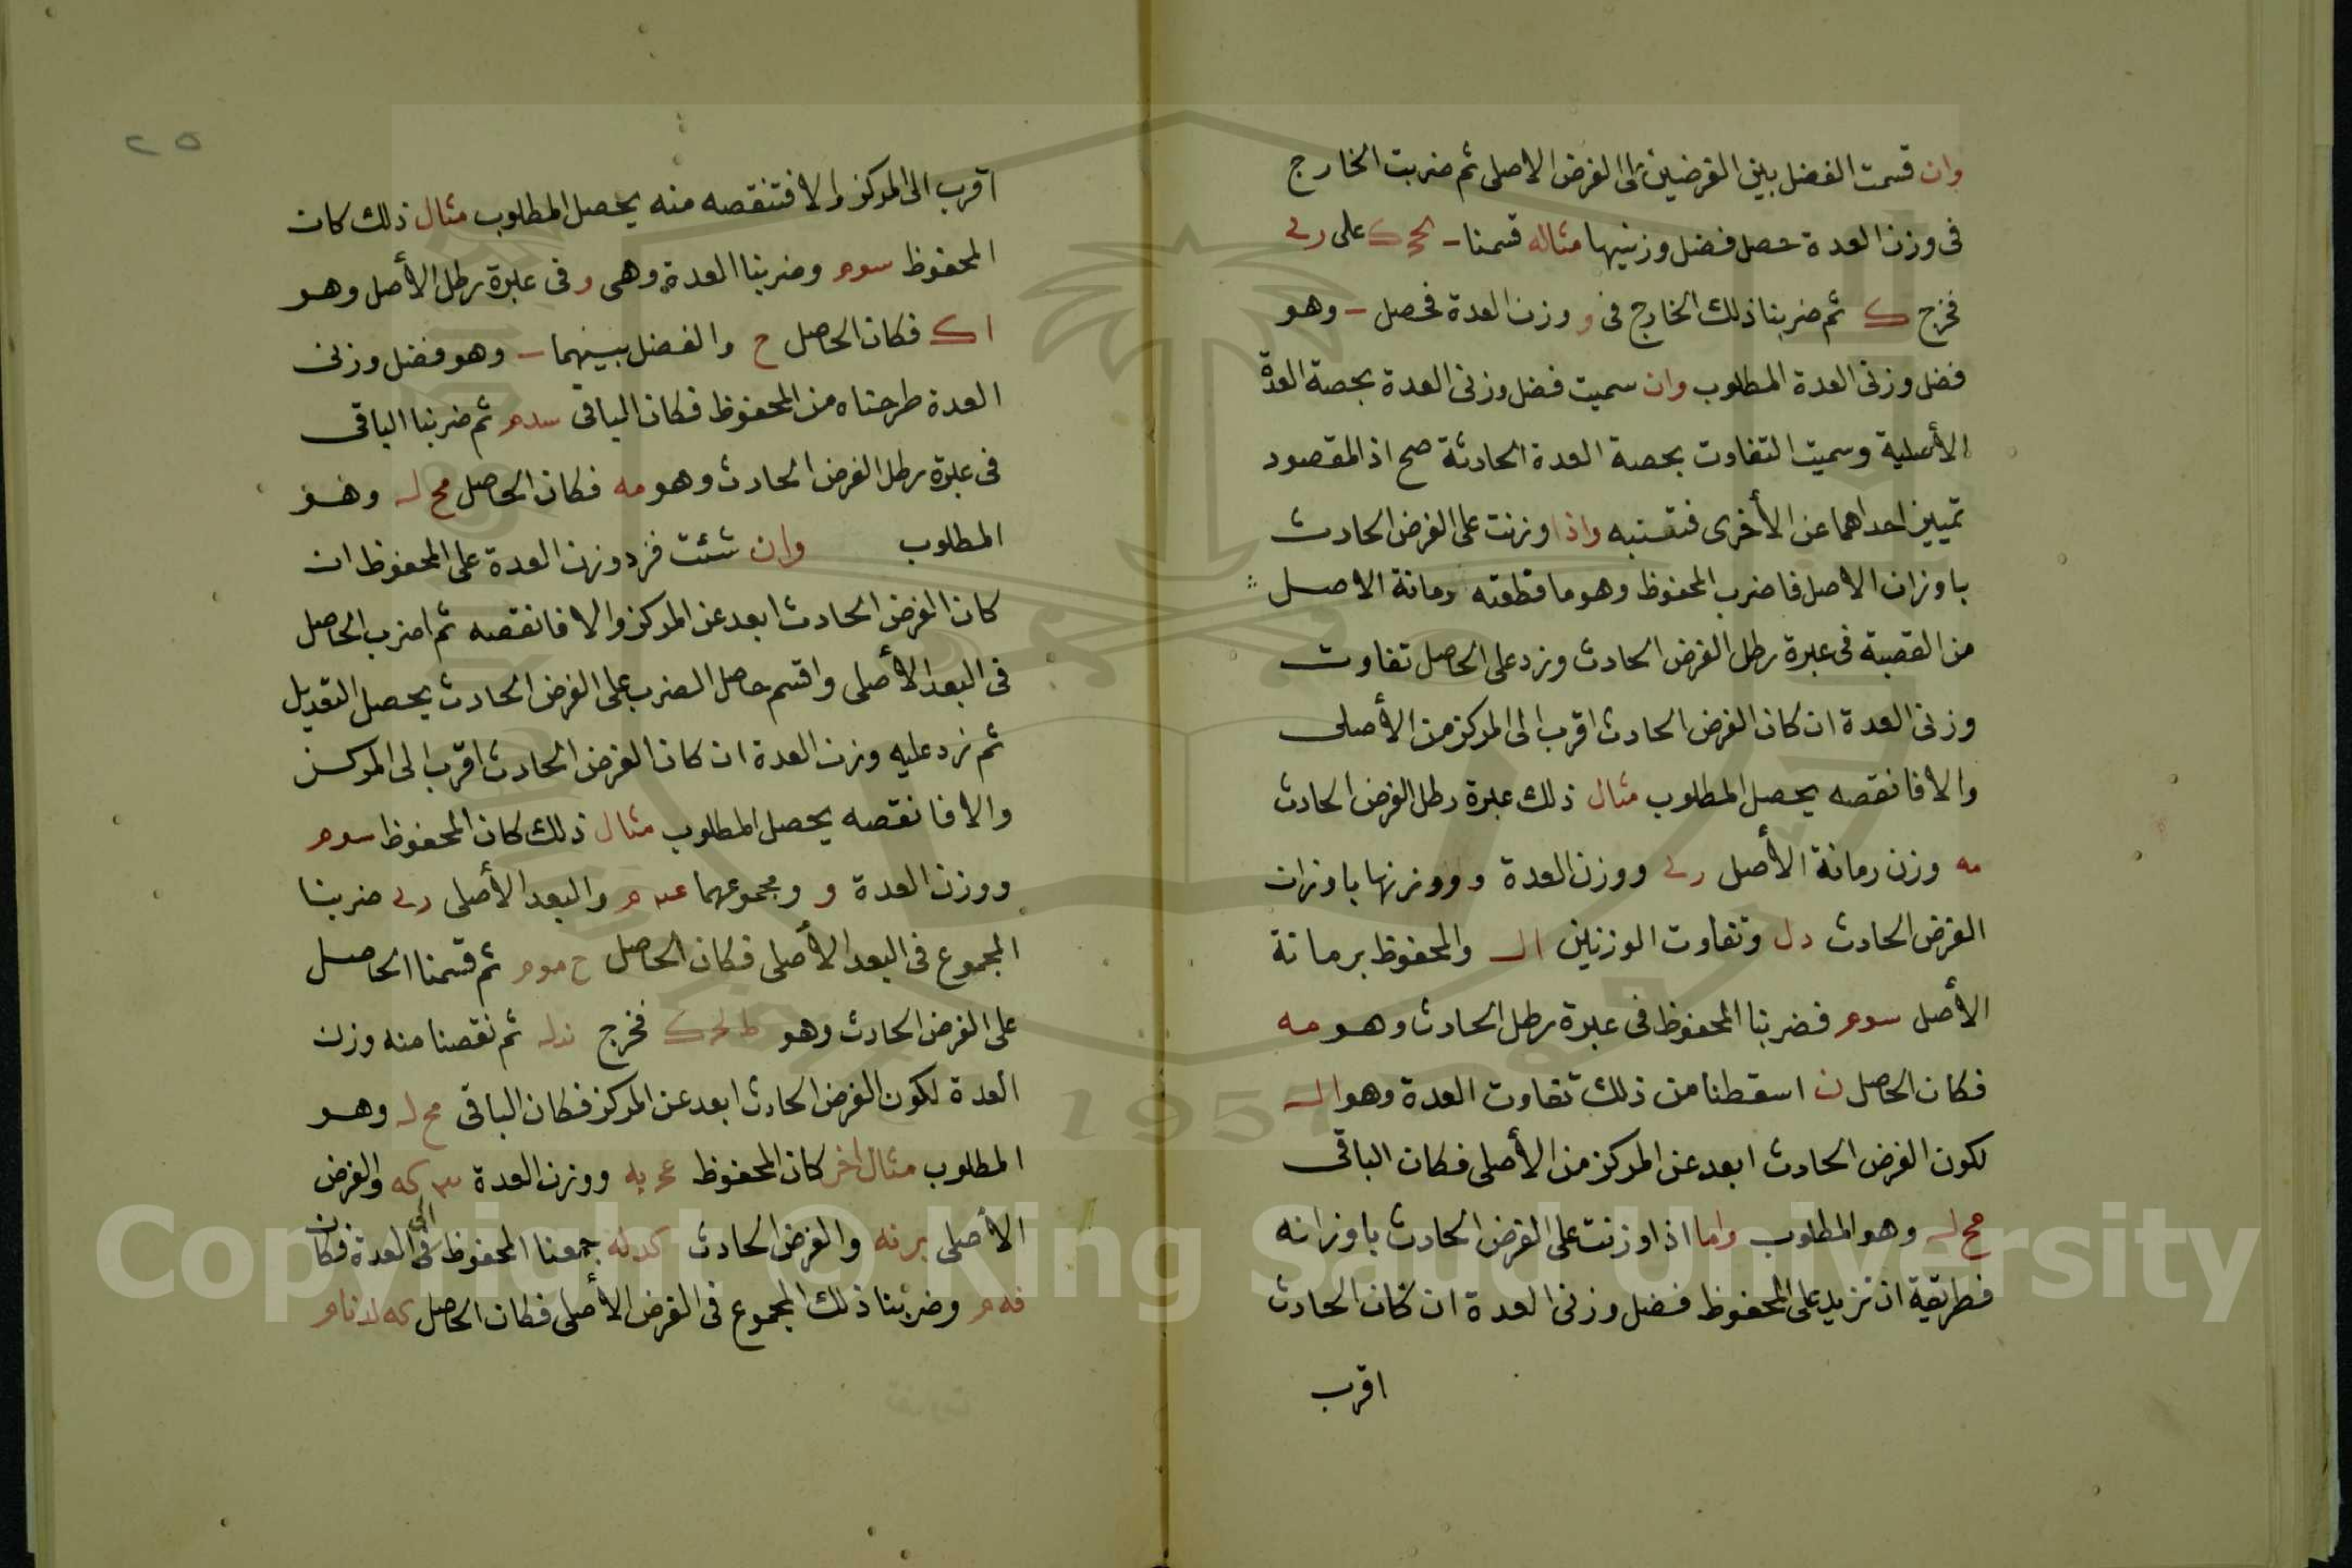 وان قسمت الفضل بين الفرضين على الفرض الاصلى ثم ضربت الخارج
فى وزن العدة حصل فضل وزنيها مثاله قسمنا على
فخرج ك ثم ضربنا ذلك الخارج فى و وزن العدة فحصل وهو
فضل وزنى العدة المطلوب وان سميت فضل وزنى العدة بحصة العدة
الأصلية وسميت التفاوت بحصة العدة الحادثة صح اذ المقصود
تمييز احداهما عن الأخرى فتنبه واذا وزنت على الفرض الحادث
باوزان الاصل فاضرب المحفوظ وهو ما قطعته رمانة الاصل
من القصبة فى عبرة رطل الفرض الحادث وزد على الحاصل تفاوت
وزنى العدة ان كان الفرض الحادث اقرب الى المركز من الأصلى
والا فانقصه يحصل المطلوب مثال ذلك عبرة رطل الفرض الحادث
مه وزن رمانة الأصل ووزن العدة و ووزنها باوزان
الفرض الحادث دل وتفاوت الوزنين الـ والمحفوظ برمانة
الأصل سوم فضربنا المحفوظ فى عبرة رطل الحادث وهو مه
فكان الحاصل ن اسقطنا من ذلك تفاوت العدة وهو الـ
لكون الفرض الحادث ابعد عن المركز من الأصلى فكان الباقى
مح لـ وهو المطلوب واما اذا وزنت على الفرض الحادث باوزانه
فطريقة ان تزيد على المحفوظ فضل وزنى العدة ان كان الحادث
اقرب
٢٥
اقرب الى المركز والا فتنقصه منه يحصل المطلوب مثال ذلك كان
المحفوظ سوم وضربنا العدة وهى و فى عبرة رطل الأصل وهو
اك فكان الحاصل ح والفضل بينهما وهو فضل وزنى
العدة طرحناه من المحفوظ فكان الباقى سدم ثم ضربنا الباقى
فى عبرة رطل الفرض الحادث وهو مه فكان الحاصل مح لـ وهو
المطلوب وان شئت فزد وزن العدة على المحفوظ ان
كان الفرض الحادث ابعد عن المركز والا فانقصه ثم اضرب الحاصل
فى البعد الأصلى واقسم حاصل الضرب على الفرض الحادث يحصل التعديل
ثم زد عليه وزن العدة ان كان الفرض الحادث اقرب الى المركز
والا فانقصه يحصل المطلوب مثال ذلك كان المحفوظ سوم
ووزن العدة و ومجموعهما عىم والبعد الأصلى ضربنا
المجموع فى البعد الأصلى فكان الحاصل ح موم ثم قسمنا الحاصل
على الفرض الحادث وهو فخرج ندلـ ثم نقصنا منه وزن
العدة لكون الفرض الحادث ابعد عن المركز فكان الباقى مح لـ وهو
المطلوب مثال اخر كان المحفوظ ووزن العدة والفرض
الأصلى والفرض الحادث جمعنا المحفوظ الى العدة فكان
فهم وضربنا ذلك المجموع فى الفرض الأصلى فكان الحاصل
Copyright © King Saud University
1957